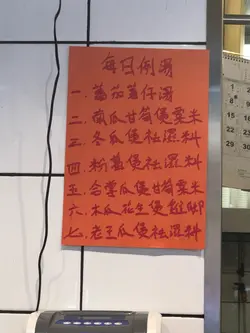 每日例湯
一.蕃茄薯仔湯
二.南瓜甘筍煲粟米
三.冬瓜煲祛濕料
四.粉葛煲祛濕料
五.合掌瓜煲甘筍粟米
六.木瓜花生煲雞腳
七.老王瓜煲祛濕料